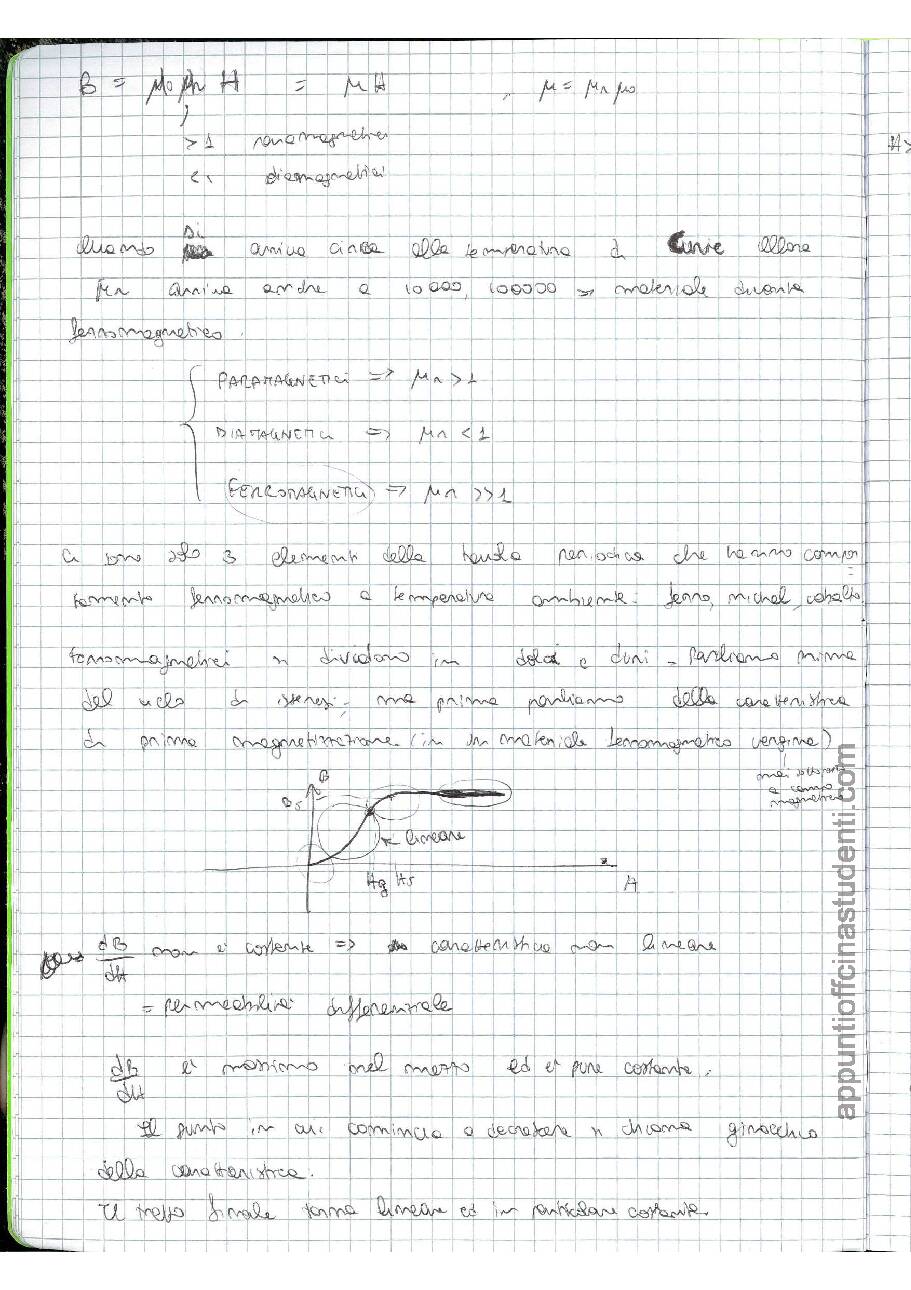 B = μ0 μr H = μ H , μ = μr μ0
>1 paramagnetici
<1 diamagnetici
Quando si arriva circa alla temperatura di Curie allora
μr arriva anche a 10000, 100000 => materiale diventa
ferromagnetico.
PARAMAGNETICI => μr > 1
DIAMAGNETICI => μr < 1
FERROMAGNETICI => μr >> 1
Ci sono solo 3 elementi della tavola periodica che hanno compor
tamento ferromagnetico a temperatura ambiente: ferro, nichel, cobalto.
Ferromagnetici si dividono in dolci e duri - Parliamo prima
del ciclo di isteresi, ma prima parliamo della caratteristica
di prima magnetizzazione (in un materiale ferromagnetico vergine)
mai sottoposto
a campo
magnetico
B
Bs
lineare
Hg Hs H
dB/dH non è costante => caratteristica non lineare
= permeabilità differenziale
dB/dH è massimo nel mezzo ed è pure costante.
Il punto in cui comincia a decrescere si chiama ginocchio
della caratteristica.
Il tratto finale torna lineare ed in particolare costante.
H>
appuntioffcinastudenti.com